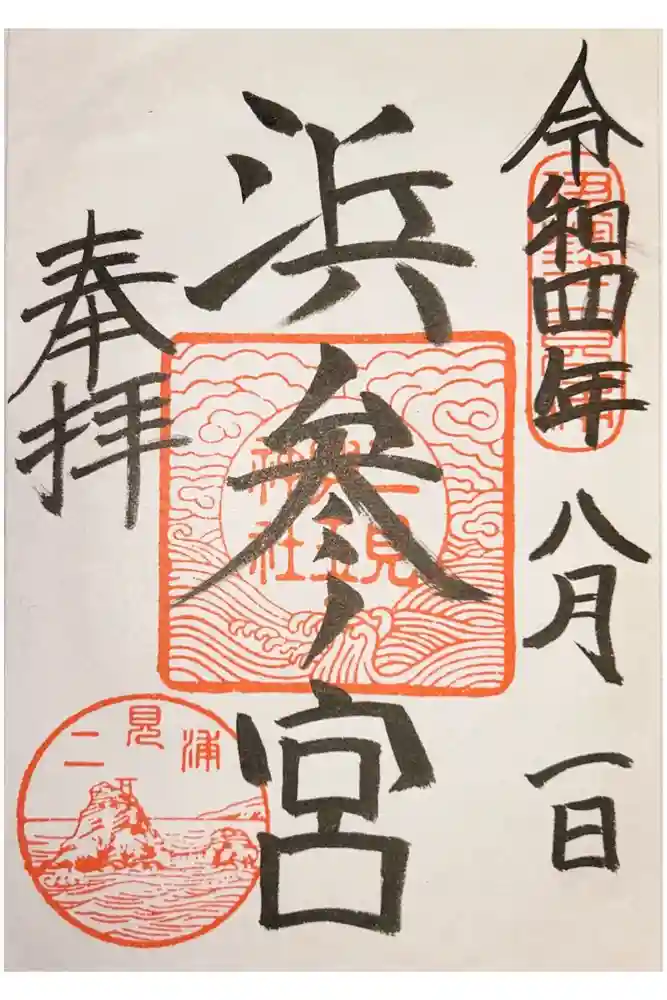 令和四年八月一日
浜参宮
奉拝
二見
興玉
神社
二見浦